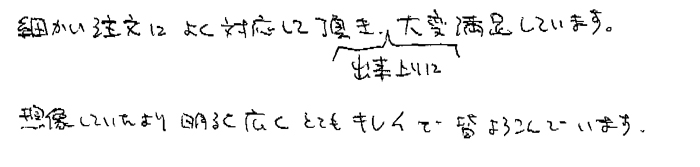 細かい注文に よく対応して頂き、大変満足しています。
出来上りに
想像していたより 明るく広く とても キレイで 皆 よろこんでいます。